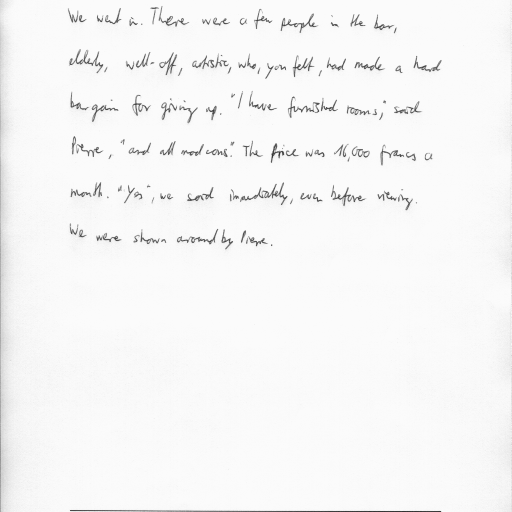 We went in. There were a few people in the bar,
elderly, well-off, artistic, who, you felt, had made a hard
bargain for giving up. "I have furnished rooms," said
Pierre, "and all modcons". The price was 16,000 francs a
month. "Yes", we said immediately, even before viewing.
We were shown around by Pierre.